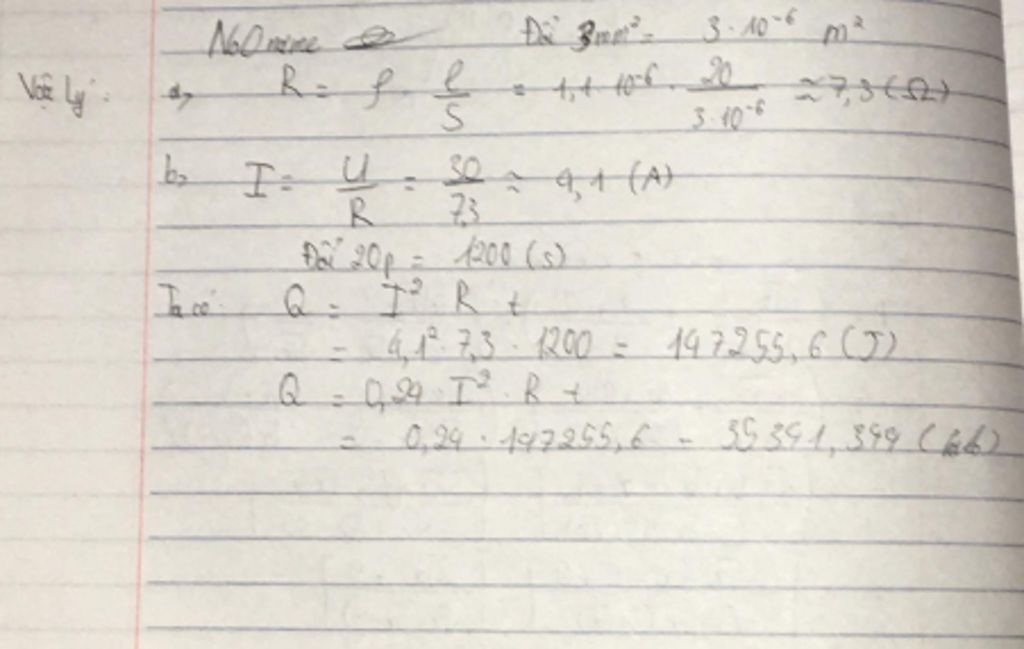 Đổi 3mm² = 3 · 10⁻⁶ m²
Vật Lý: a, R = ρ · l/S = 1,1 · 10⁻⁶ · 20/3·10⁻⁶ ≈ 7,3 (Ω)
b, I = U/R = 30/7,3 ≈ 4,1 (A)
Đổi 20p = 1200 (s)
Ta có: Q = I² · R t
= 4,1² · 7,3 · 1200 = 147255,6 (J)
Q = 0,24 · I² · R t
= 0,24 · 147255,6 = 35341,344